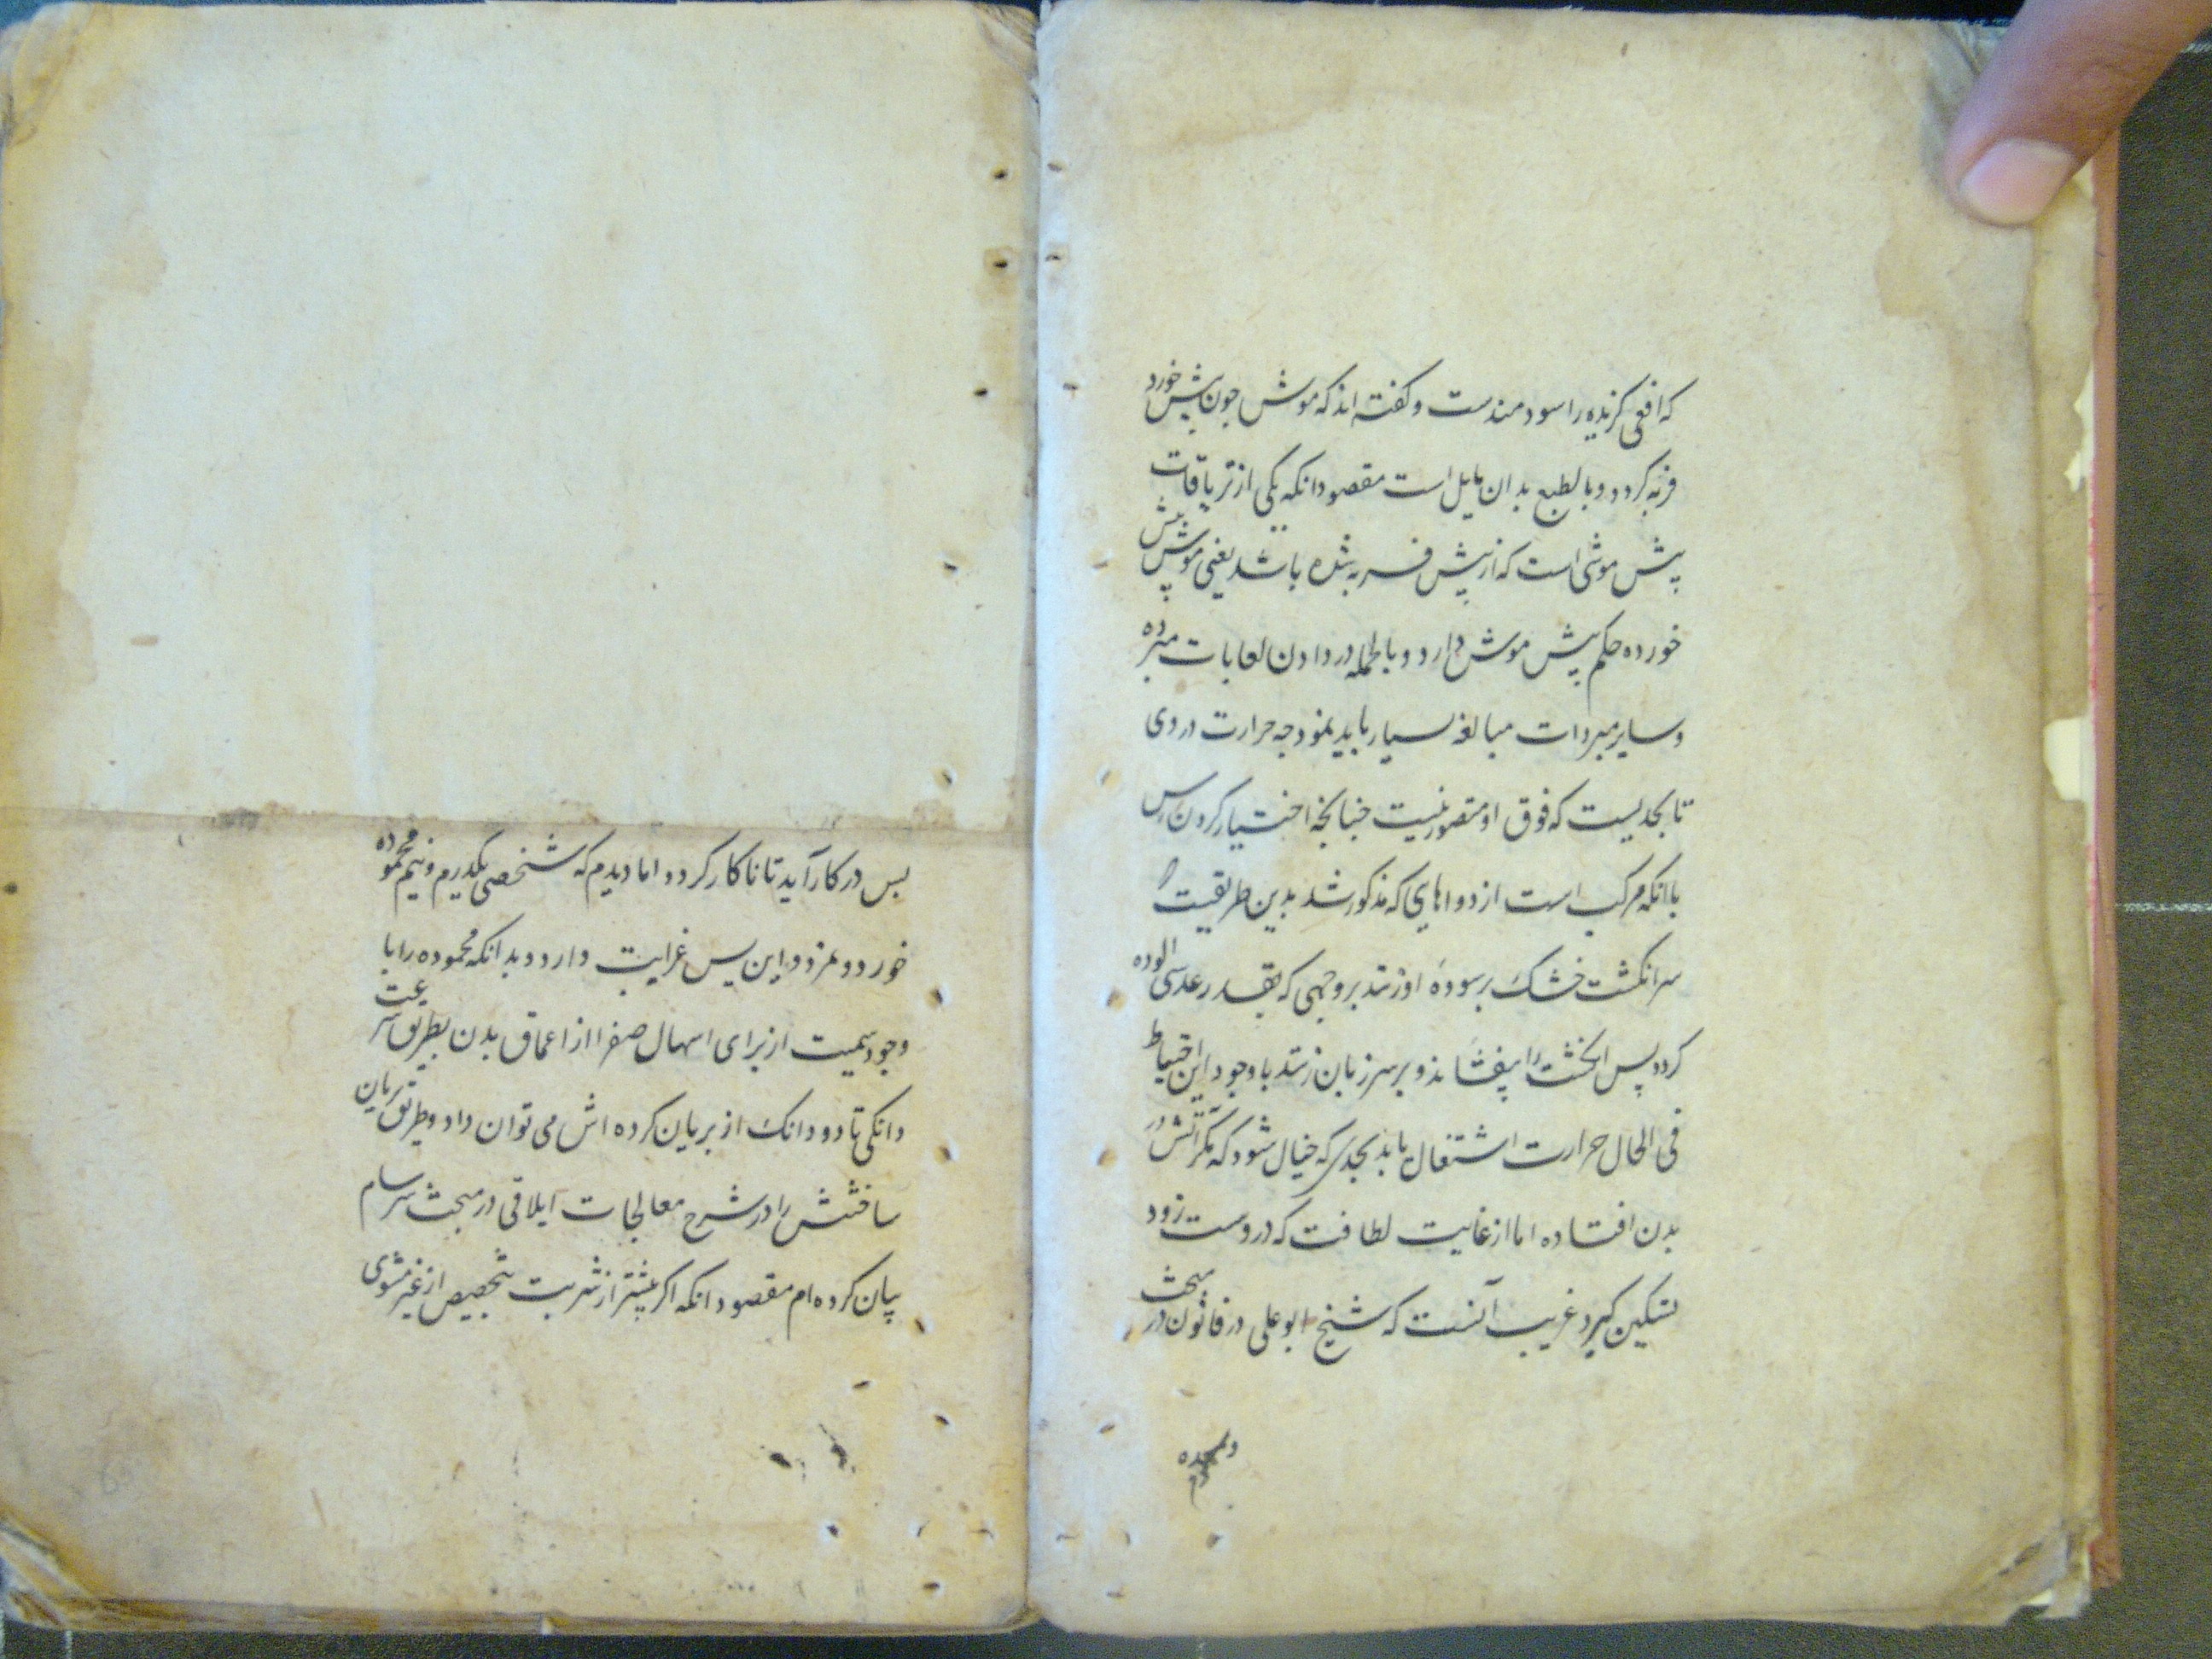 که افعی کزیده را سودمندست و کفته اند که موش جون بیش خورد
فربه کردد و بالطبع بدان مایل است مقصود انکه یکی از تریاقات
بیش موشی است که از بیش فربه شده باشد یعنی موش بیش
خورده حکم بیش موش دارد و بالجمله در دادن لعابات مبرده
و سایر مبردات مبالغه بسیار باید نمود جه حرارت در وی
تا بحدیست که فوق او متصور نیست جنانجه اختیار کردن رس
با انکه مرکب است از دواهایی که مذکور شد بدین طریقیست
سر انکشت خشک بر سوده او زنند بر وجهی که بقدر عدسی الوده
کردد بس انکشت را بیفشانند و بر سر زبان زنند با وجود این احتیاط
فی الحال حرارت اشتعال یابد بحدی که خیال شود که مکر اتش در
بدن افتاده اما از غایت لطافت که در وست زود
تسکین کیرد غریب آنست که شیخ ابو علی در قانون در مبحث
بس در کار آید تا ناکار کردد اما دیدم که شخصی یکدرم و نیم محموده
خورد و نمرد و این بس غرایب دارد و بدانکه محموده را با
وجود سمیت از برای اسهال صفرا از اعماق بدن بطریق سرعت
دانکی تا دو دانک از بریان کرده اش می توان داد و طریق بریان
ساختنش را در شرح معالجات ایلاقی در مبحث سرسام
بیان کرده ام مقصود انکه اکر بیشتر از شربت بتخصیص از غیر مشوی